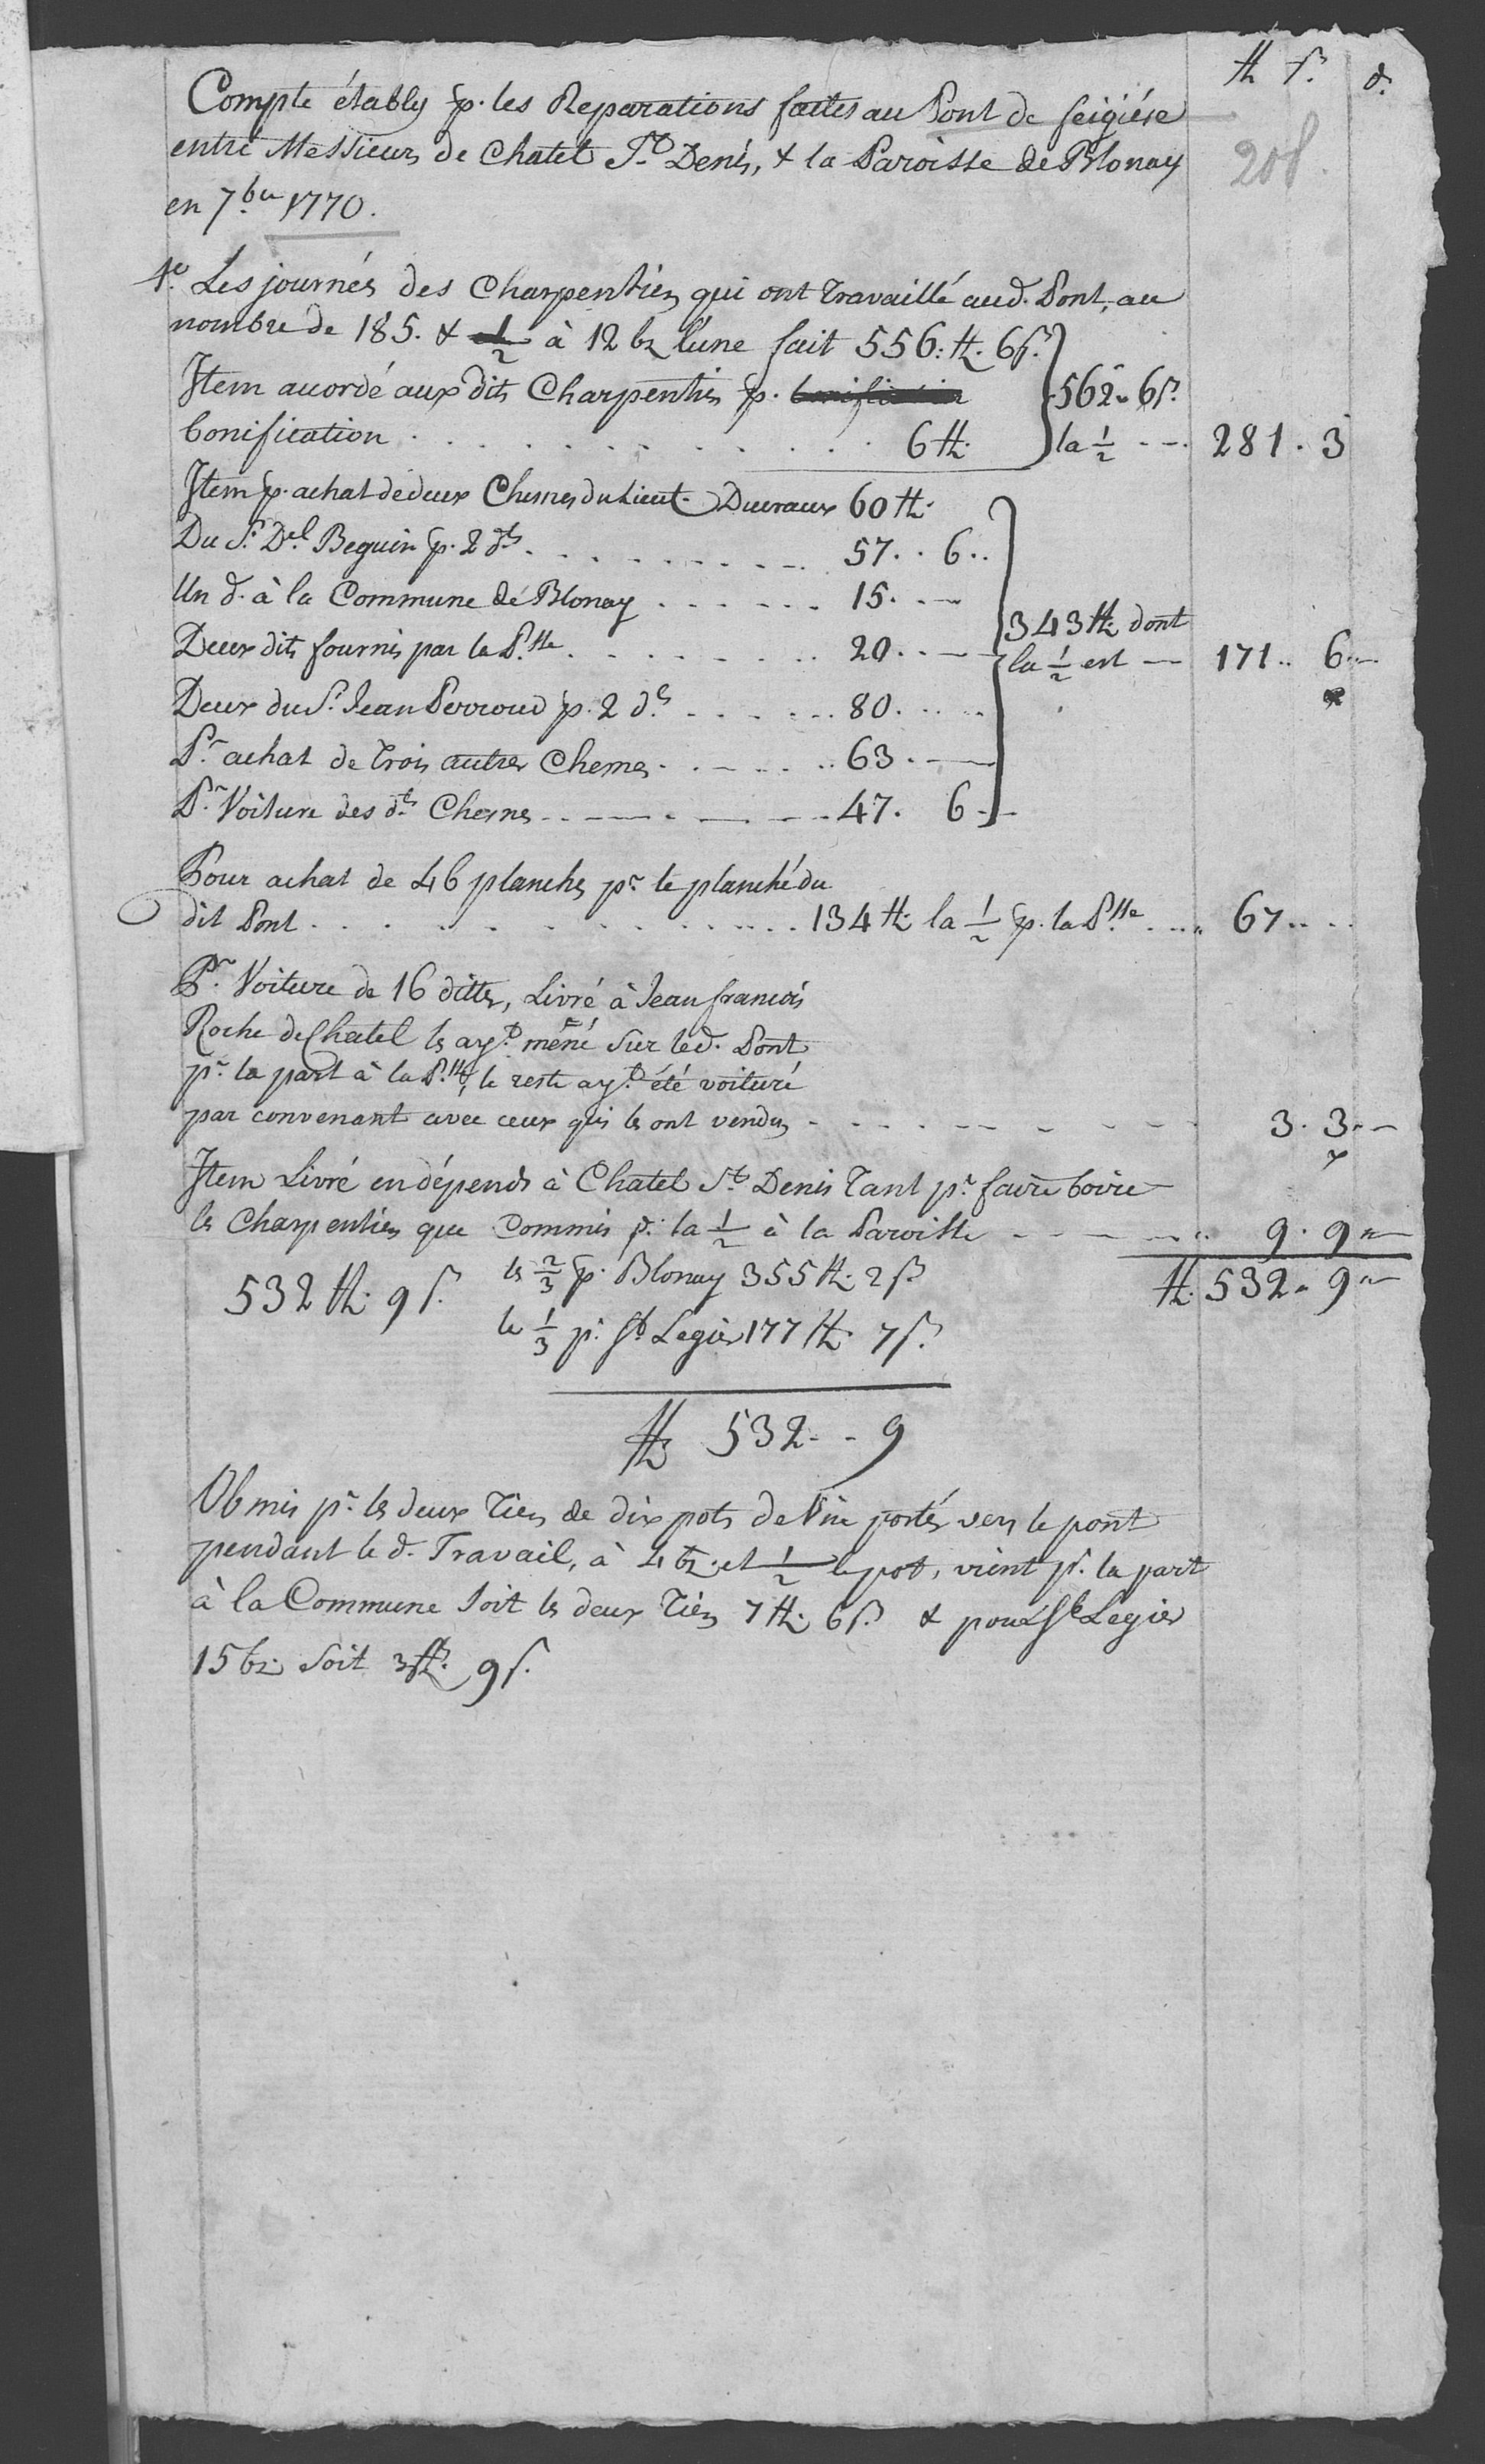 ff. ſ. d.
Compte étably p. les Reparations faites au Pont de feigiére
entre Messieurs de Chatel St Denis, & la Paroisse de Blonay
208.
en 7.bre 1770.
1.o Les journés des Charpentiers qui ont Travaillé aud. Pont, au
nombre de 185. & 1/2 à 12 bz l'une fait 556: ff. 6 ſ.
Item acordé aux dits Charpentiers p. 562. 6 ſ.
bonification . . . . . . . . . 6 ff. la 1/2 --- 281 . 3
Item p. achat de deux Chesnes du Lieut. Ducraux 60 ff.
Du Sr. Del. Beguin p. 2 dts . . . . . . . 57 . . 6 . .
Un d. à la Commune de Blonay . . . . . . 15. . —
343 ff. dont
Deux dits fournis par la P.sse . . . . . . . . 20 . . — la 1/2 est — 171 . . 6 . —
Deux du Sr. Jean Perroud p. 2 d.ts . . . . . . 80 . . . .
Pr. achat de Trois autres Chesnes . . — . . . . 63 . —
Pr. Voiture des d.ts Chesnes . . — — . — — . 47 . 6 . —
Pour achat de 46 planches pr. le planché du
dit Pont . . . . . . . . . . . . 134 ff. la 1/2 p. la P.sse . . . . 67 . . . .
Pr. Voiture de 16 dittes, Livré à Jean francois
Roche de Chatel les ayt. mené sur led. Pont
pr. la part à la P.sse, le reste ayt. été voituré
par convenant avec ceux qui les ont vendus . . . . . — . . — 3 . 3 . —
Item Livré en dépends à Chatel St Denis Tant pr. faire boire
les Charpentiers que Commis p. la 1/2 à la Paroisse . . . — . . 9 . 9 . —
532 ff. 9 ſ. les 2/3 p. Blonay 355 ff. 2 ſ. ff. 532 . 9 . —
le 1/3 p. St Legier 177 ff. 7 ſ.
ff 532 - - 9
Obmis pr. les deux Tiers de dix pots de Vin portés vers le pont
pendant le d. Travail, à 4 bz. et 1/2 le pot, vient pr. la part
à la Commune soit les deux Tiers 7 ff. 6 ſ. & pour St Legier
15 bz. soit 3 ff. 9 ſ.